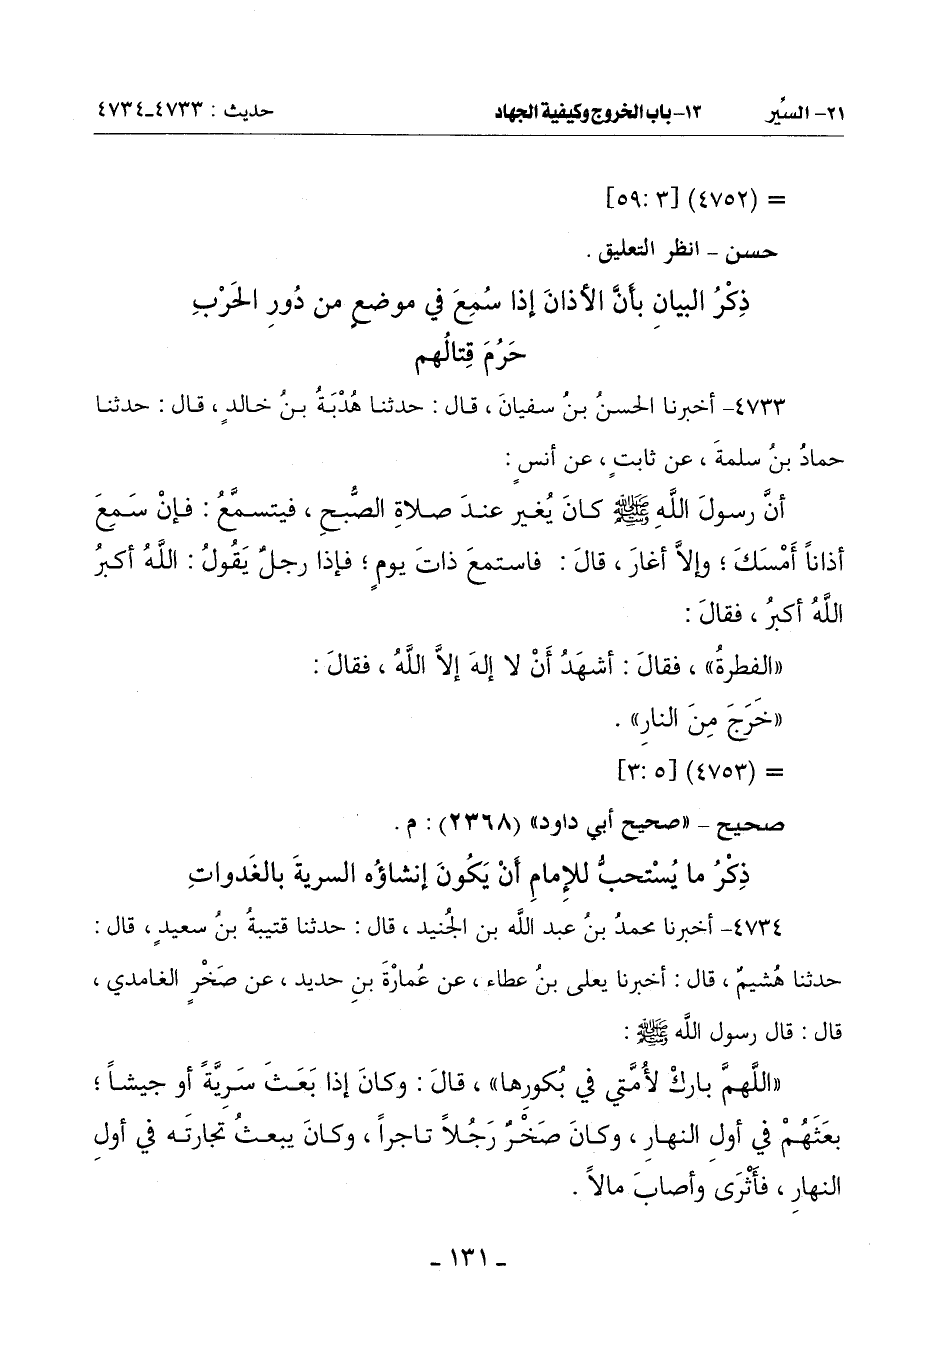 ٢١- السِّيَر ١٣-باب الخروج وكيفية الجهاد حديث : ٤٧٣٣-٤٧٣٤
= (٤٧٥٢) [٣ :٥٩]
حسن - انظر التعليق .
ذِكْرُ البيانِ بأَنَّ الأذانَ إذا سُمِعَ في موضعٍ من دُورِ الحَرْبِ
حَرُمَ قِتالُهم
٤٧٣٣- أخبرنا الحسنُ بنُ سفيانَ ، قال : حدثنا هُدْبَةُ بنُ خالدٍ ، قال : حدثنا
حمادُ بنُ سلمةَ ، عن ثابتٍ ، عن أنسٍ :
أنَّ رسولَ اللَّهِ ﷺ كانَ يُغير عندَ صلاةِ الصُّبحِ ، فيتسمَّعُ : فإنْ سَمِعَ
أذاناً أَمْسَكَ ؛ وإلاَّ أغارَ ، قالَ : فاستمعَ ذاتَ يومٍ ؛ فإذا رجلٌ يَقُولُ : اللَّهُ أكبرُ
اللَّهُ أكبرُ ، فقالَ :
«الفطرةُ» ، فقالَ : أشهَدُ أَنْ لا إلهَ إلاَّ اللَّهُ ، فقالَ :
«خَرَجَ مِنَ النارِ» .
= (٤٧٥٣) [٥ :٣]
صحيح - «صحيح أبي داود» (٢٣٦٨) : م .
ذِكْرُ ما يُسْتحبُّ للإمامِ أَنْ يَكُونَ إنشاؤُه السريةَ بالغَدواتِ
٤٧٣٤- أخبرنا محمدُ بنُ عبد اللَّه بن الجُنيد ، قال : حدثنا قتيبةُ بنُ سعيدٍ ، قال :
حدثنا هُشيمٌ ، قال : أخبرنا يعلى بنُ عطاء ، عن عُمارْةَ بنِ حديد ، عن صَخْرٍ الغامدي ،
قال : قال رسول اللَّه ﷺ :
«اللَّهمَّ باركْ لأُمَّتي في بُكورها» ، قالَ : وكانَ إذا بَعَثَ سَرِيَّةً أو جيشاً ؛
بعَثَهُمْ في أولِ النهارِ ، وكانَ صَخْرٌ رَجُلاً تاجراً ، وكانَ يبعثُ تجارتَه في أولِ
النهارِ ، فأَثْرَى وأصابَ مالاً .
- ١٣١ -